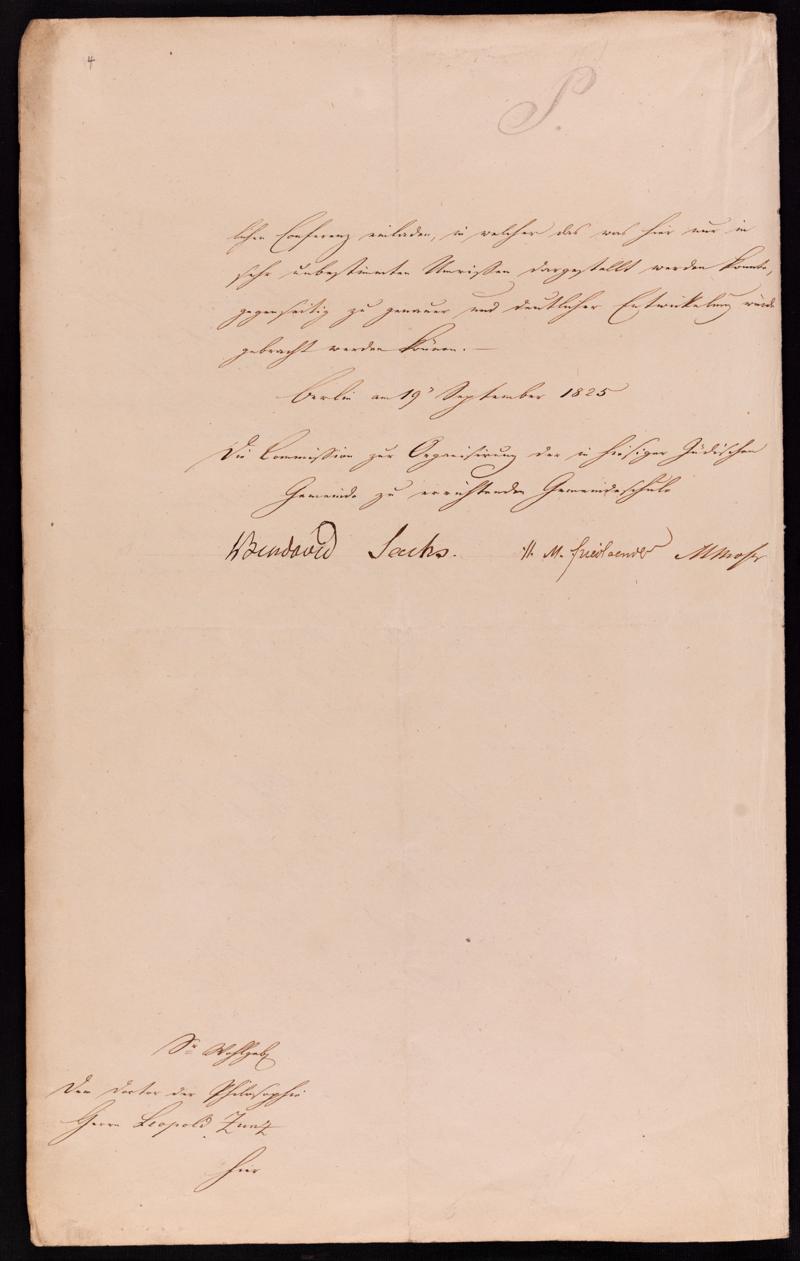 4
P.
lichen Conferenz einladen, in welcher das was hier nur in
sehr unbestimmten Umrißen dargestellt werden konnte,
gegenseitig zu genauer und deutlicher Entwikelung würde
gebracht werden können. —
Berlin am 19t September 1825
Die Commission zur Organisirung der in hiesiger Jüdischen
Gemeinde zu errichtenden Gemeindeschule
Bendavid Sachs. M. Friedlaender M Moser
Sr Wohlgeb
Dem Doctor der Philosophie
Herrn Leopold Zunz
hier